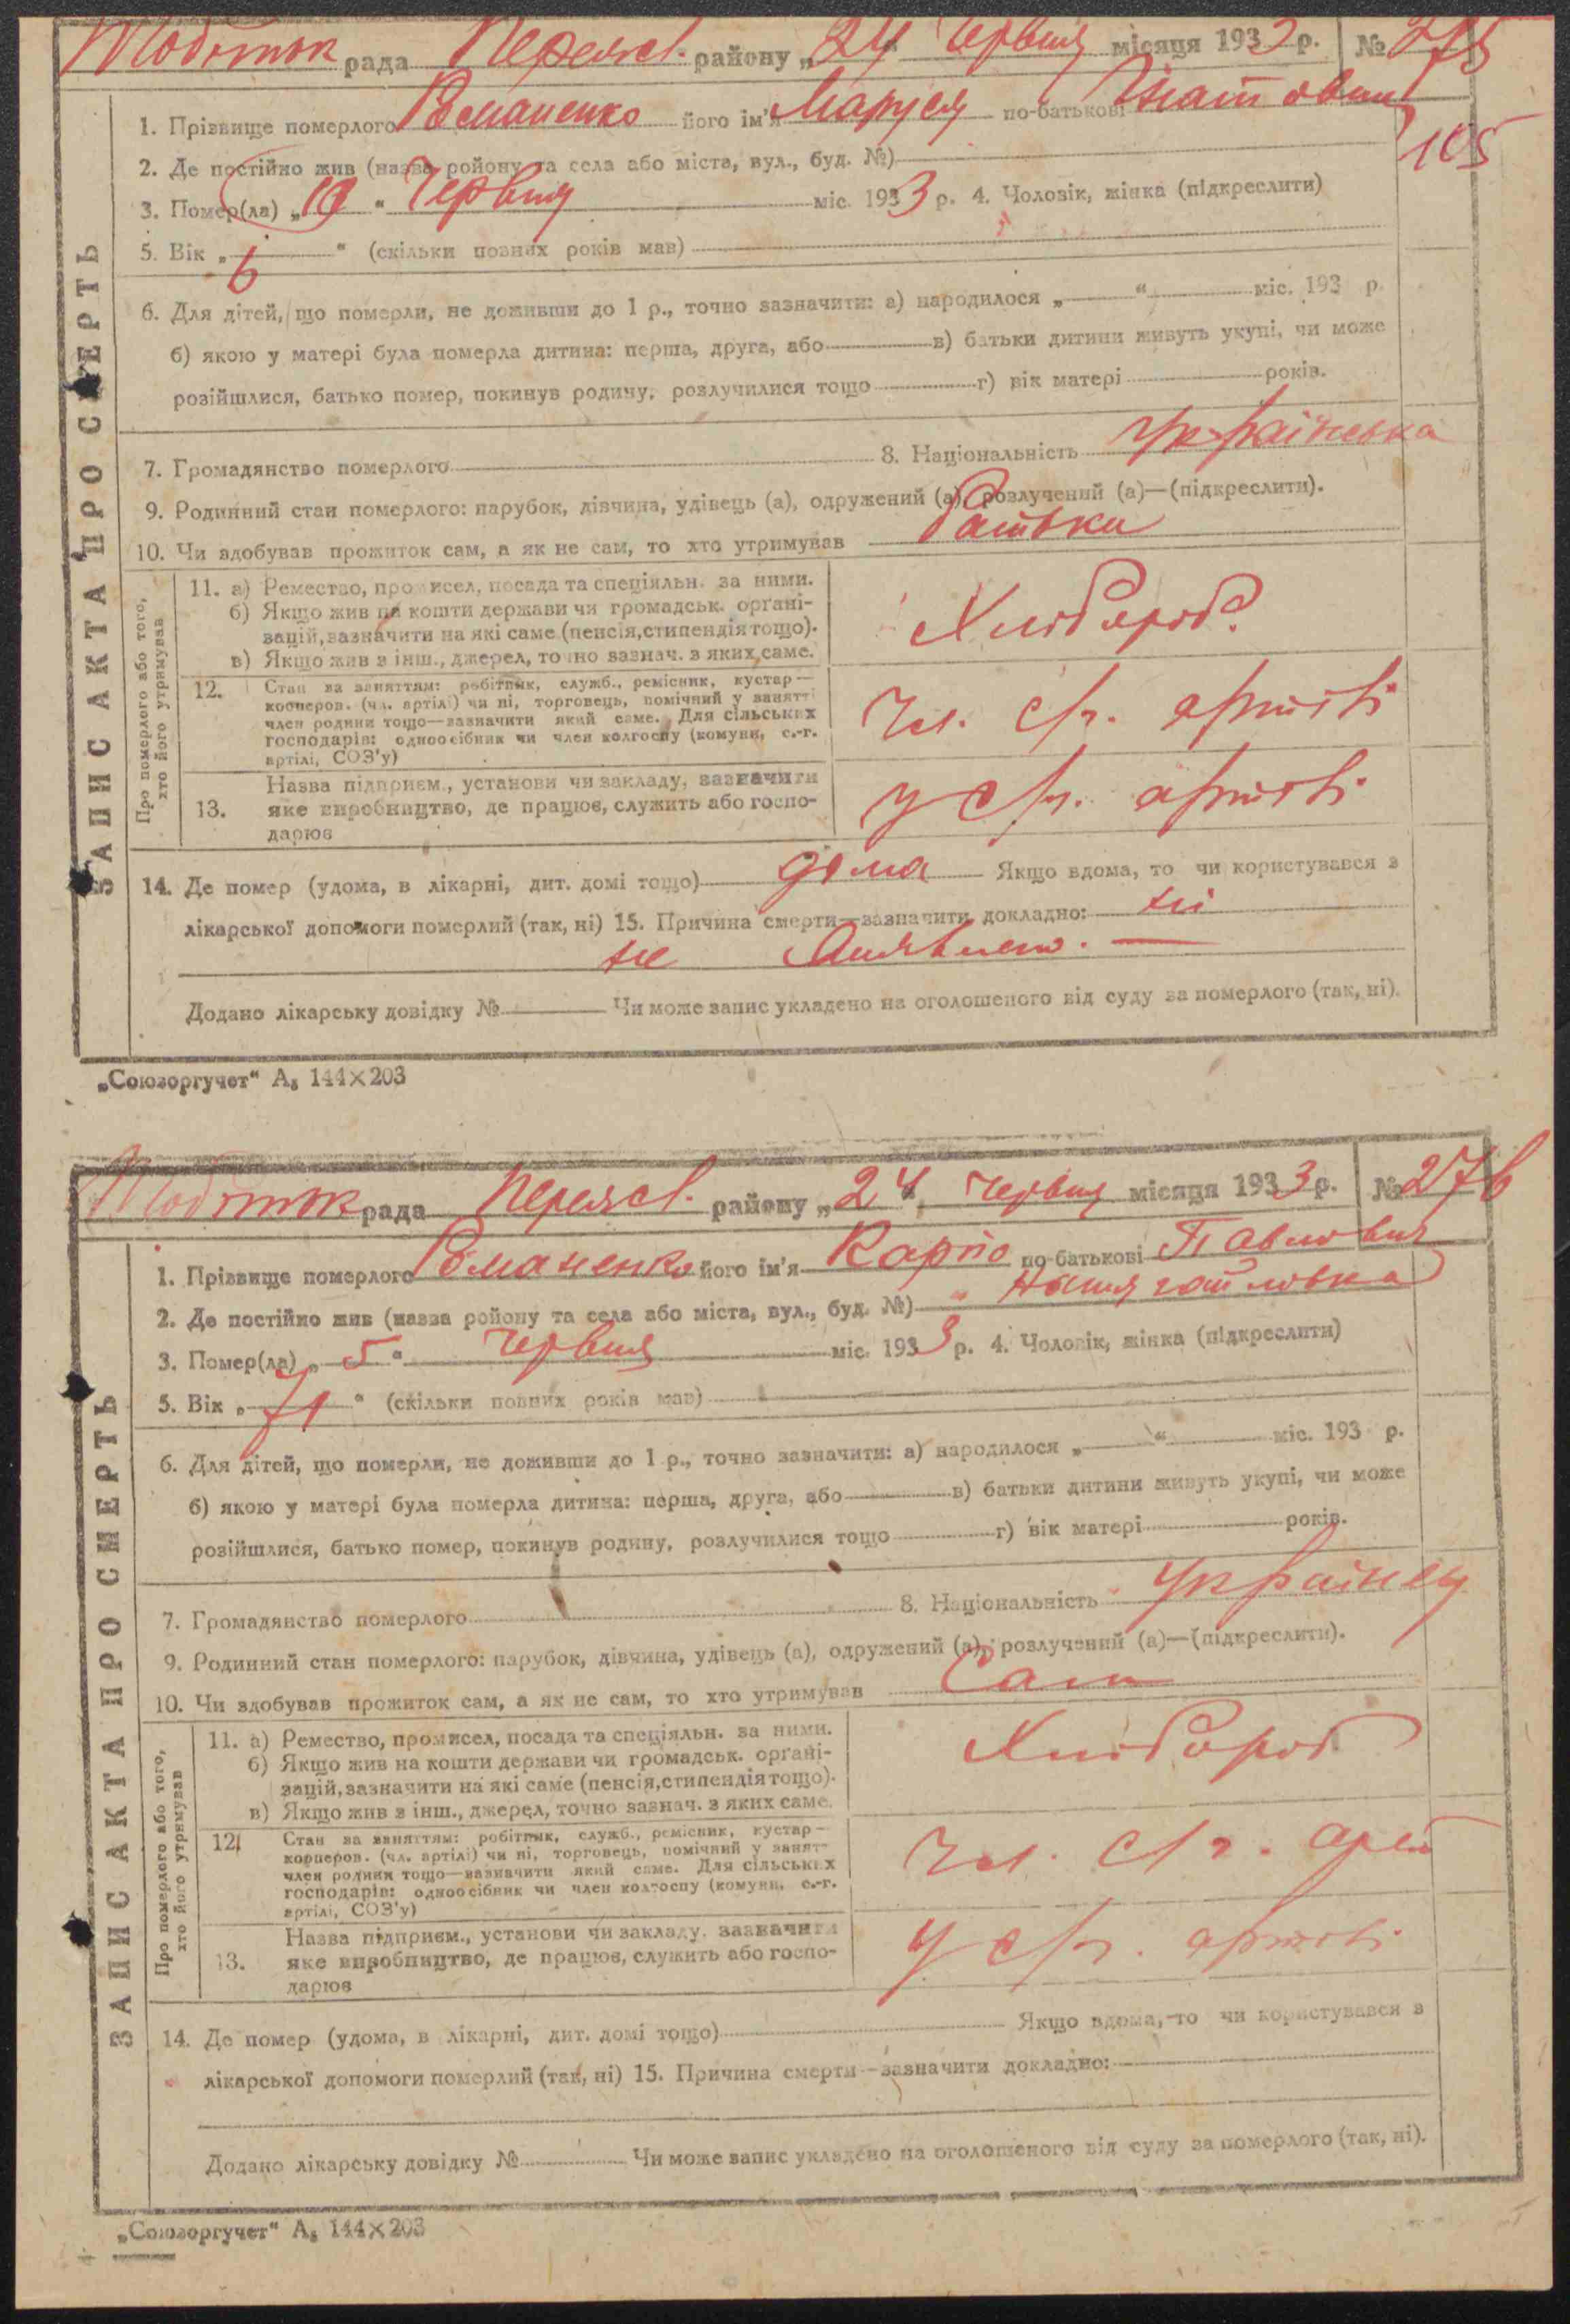 рада Переясл. району „24“ Червня місяця 1933 р. № 275
1. Прізвище померлого Романенко його ім'я Маруся по-батькові
105
2. Де постійно жив (назва ройону та села або міста, вул., буд. №)
3. Помер(ла) „10“ Червня міс. 1933 р. 4. Чоловік, жінка (підкреслити)
5. Вік „6“ (скільки повних років мав)
6. Для дітей, що померли, не доживши до 1 р., точно зазначити: а) народилося „ “ міс. 193 р.
б) якою у матері була померла дитина: перша, друга, або в) батьки дитини живуть укупі, чи може
розійшлися, батько помер, покинув родину, розлучилися тощо г) вік матері років.
7. Громадянство померлого 8. Національність українська
9. Родинний стан померлого: парубок, дівчина, удівець (а), одружений (а), розлучений (а)—(підкреслити).
10. Чи здобував прожиток сам, а як не сам, то хто утримував батьки
ЗАПИС АКТА ПРО СМЕРТЬ
Про померлого або того, хто його утримував
11. а) Ремество, промисел, посада та спеціяльн. за ними.
б) Якщо жив на кошти держави чи громадськ. орґані-
зацій, зазначити на які саме (пенсія, стипендія тощо).
в) Якщо жив з інш., джерел, точно зазнач. з яких саме.
Хлібороб
12. Стан за заняттям: робітник, служб., ремісник, кустар—
кооперов. (чл. артілі) чи ні, торговець, помічний у занятті
член родини тощо—зазначити який саме. Для сільських
господарів: одноосібник чи член колгоспу (комуни, с.-г.
артілі, СОЗ'у)
Чл. с/г. артілі
13. Назва підприєм., установи чи закладу, зазначити
яке виробництво, де працює, служить або госпо-
дарює
у с/г. артілі
14. Де помер (удома, в лікарні, дит. домі тощо) дома Якщо вдома, то чи користувався з
лікарської допомоги померлий (так, ні) 15. Причина смерти—зазначити докладно: ні
не
Додано лікарську довідку № Чи може запис укладено на оголошеного від суду за померлого (так, ні).
„Союзоргучет“ А₅ 144×203
рада Переясл. району „24“ червня місяця 1933 р. № 276
1. Прізвище померлого Романенко його ім'я Карпо по-батькові Павлович
2. Де постійно жив (назва ройону та села або міста, вул., буд. №)
3. Помер(ла) „5“ червня міс. 1933 р. 4. Чоловік, жінка (підкреслити)
5. Вік „71“ (скільки повних років мав)
6. Для дітей, що померли, не доживши до 1 р., точно зазначити: а) народилося „ “ міс. 193 р.
б) якою у матері була померла дитина: перша, друга, або в) батьки дитини живуть укупі, чи може
розійшлися, батько помер, покинув родину, розлучилися тощо г) вік матері років.
7. Громадянство померлого 8. Національність українец
9. Родинний стан померлого: парубок, дівчина, удівець (а), одружений (а), розлучений (а)—(підкреслити).
10. Чи здобував прожиток сам, а як не сам, то хто утримував Сам
ЗАПИС АКТА ПРО СМЕРТЬ
Про померлого або того, хто його утримував
11. а) Ремество, промисел, посада та спеціяльн. за ними.
б) Якщо жив на кошти держави чи громадськ. орґані-
зацій, зазначити на які саме (пенсія, стипендія тощо).
в) Якщо жив з інш., джерел, точно зазнач. з яких саме.
Хлібороб
12. Стан за заняттям: робітник, служб., ремісник, кустар—
кооперов. (чл. артілі) чи ні, торговець, помічний у занятт
член родини тощо—зазначити який саме. Для сільських
господарів: одноосібник чи член колгоспу (комуни, с.-г.
артілі, СОЗ'у)
Чл. с/г.
13. Назва підприєм., установи чи закладу, зазначити
яке виробництво, де працює, служить або госпо-
дарює
у с/г. артілі
14. Де помер (удома, в лікарні, дит. домі тощо) Якщо вдома, то чи користувався з
лікарської допомоги померлий (так, ні) 15. Причина смерти—зазначити докладно:
Додано лікарську довідку № Чи може запис укладено на оголошеного від суду за померлого (так, ні).
„Союзоргучет“ А₅ 144×203